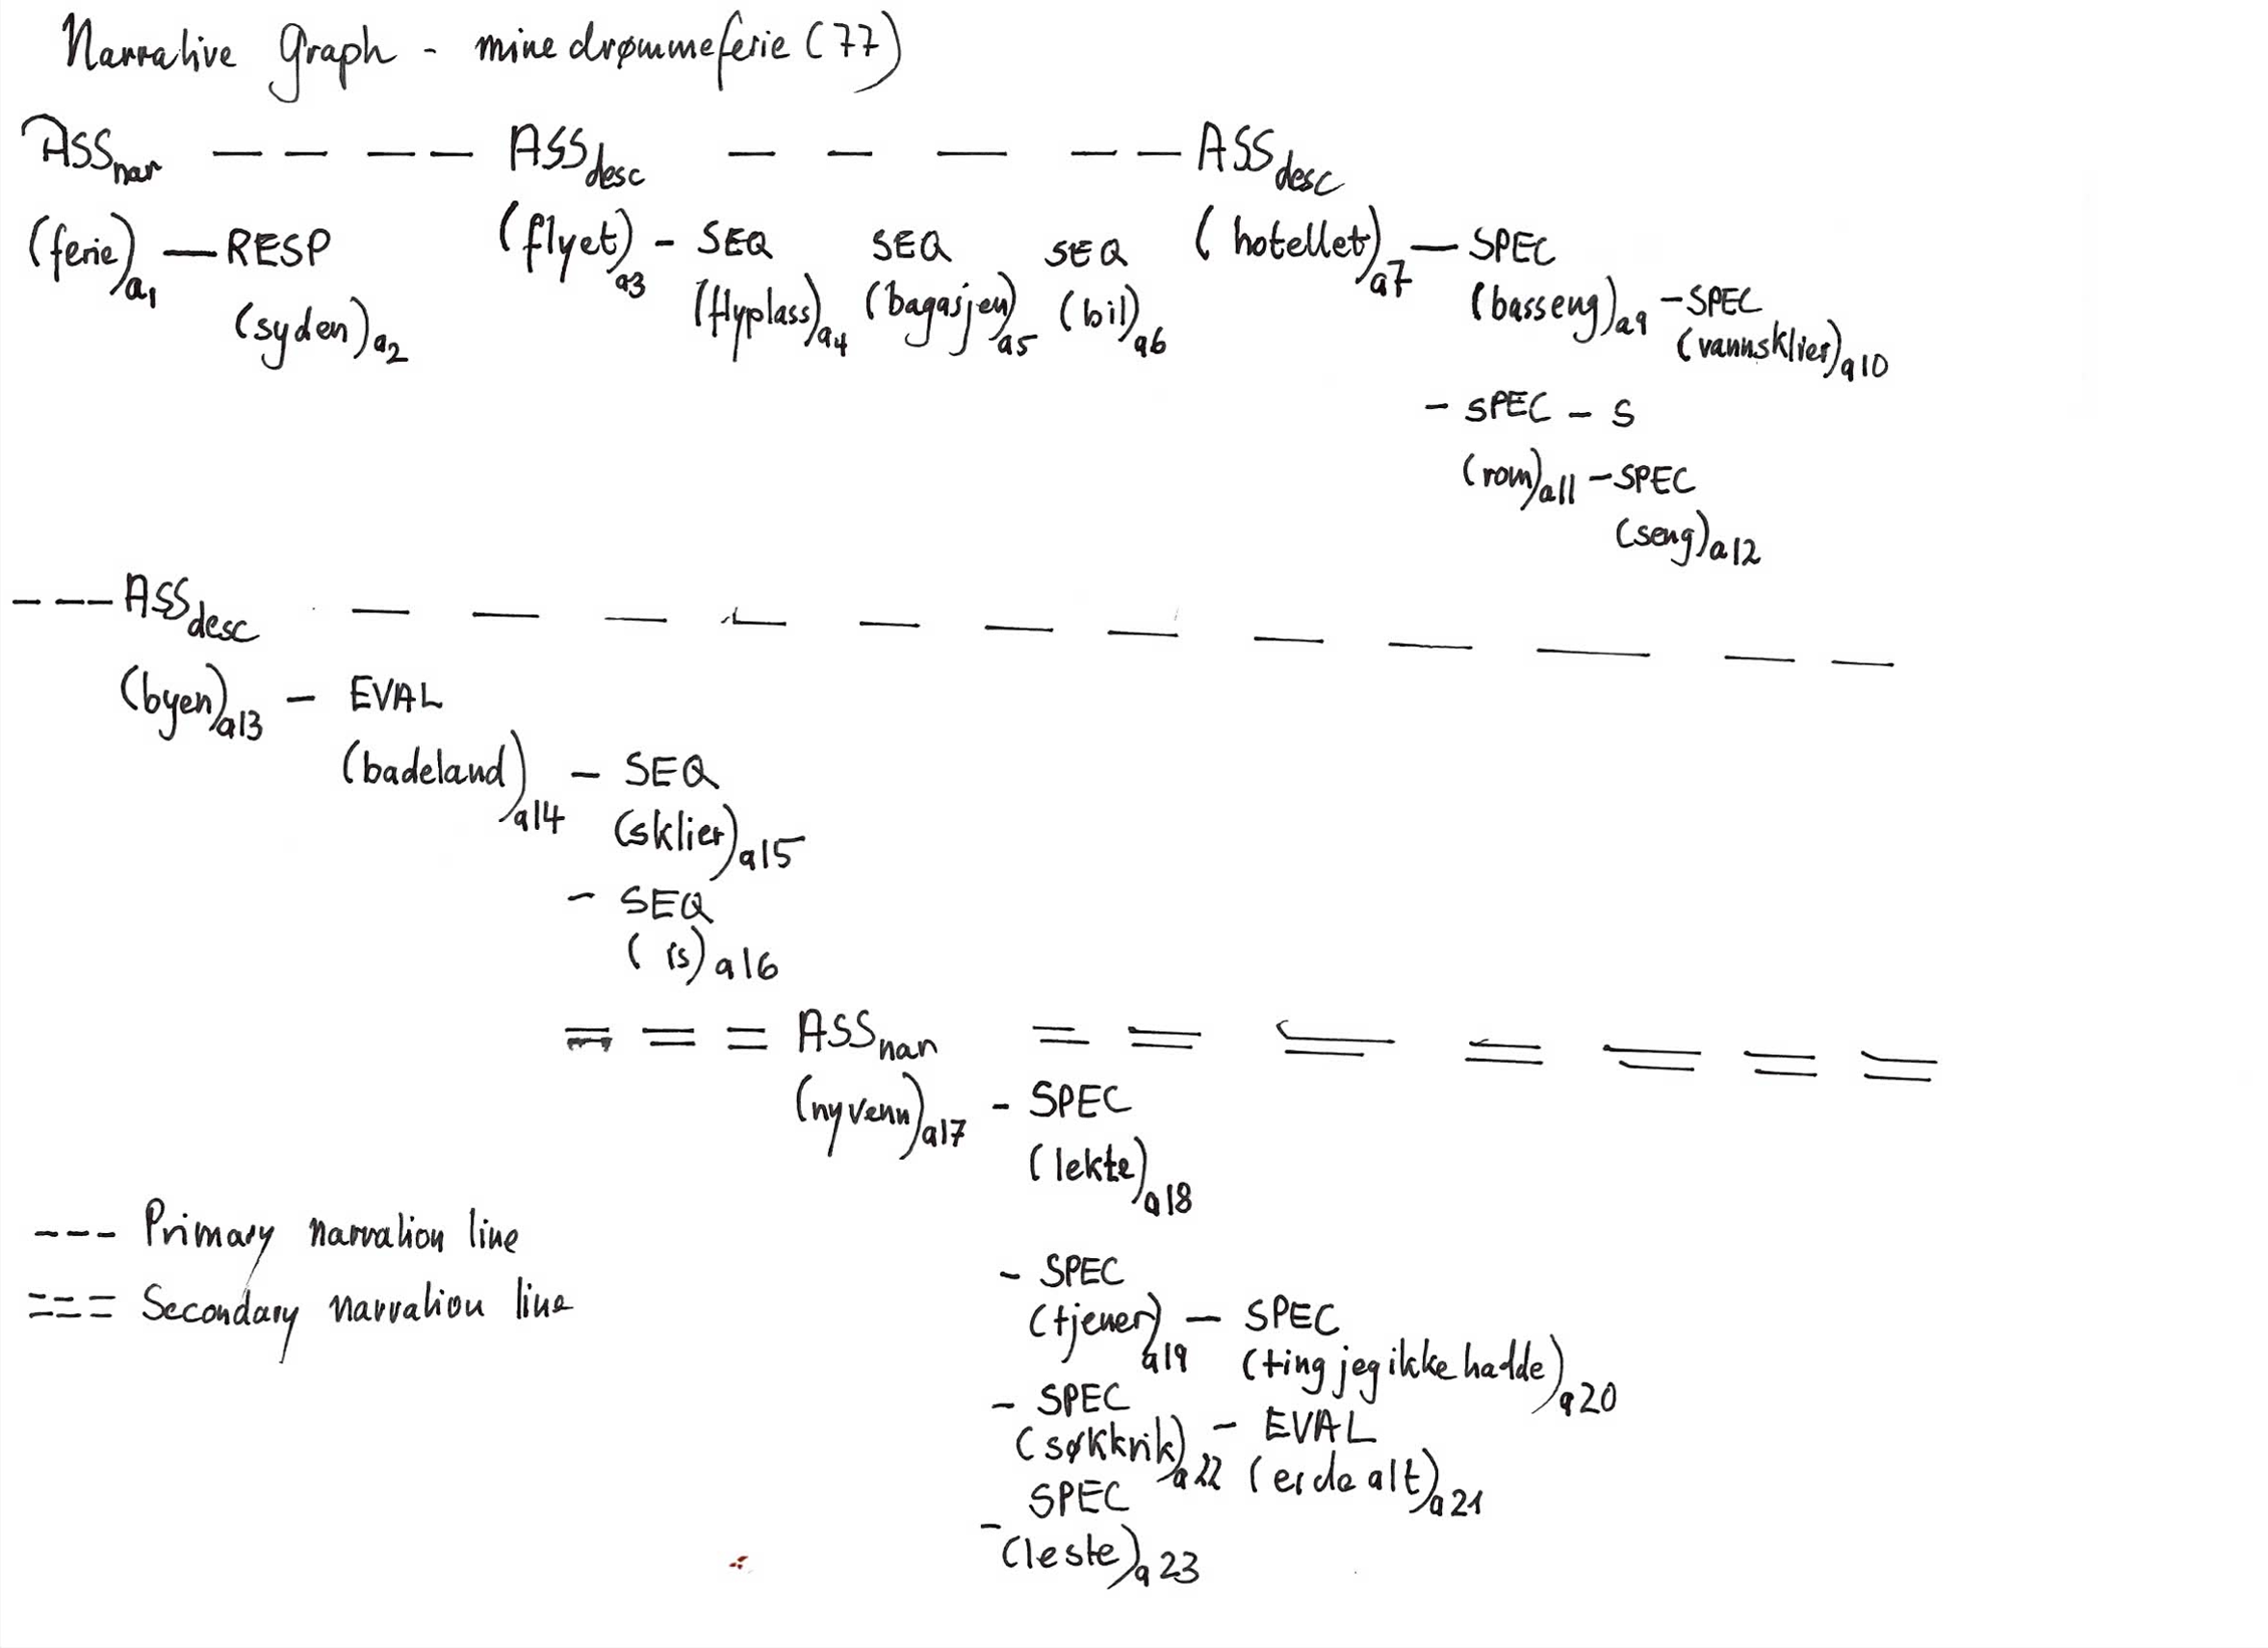 Narrative Graph - mine drømmeferie (77)
ASSnar - - - - ASSdesc - - - - - ASSdesc
(ferie)a1 — RESP (flyet)a3 - SEQ SEQ SEQ (hotellet)a7 — SPEC
(syden)a2 (flyplass)a4 (bagasjen)a5 (bil)a6 (basseng)a9 - SPEC
(vannsklier)a10
- SPEC - S
(rom)a11 - SPEC
(seng)a12
- - - ASSdesc - - - - - - - - - - - -
(byen)a13 - EVAL
(badeland)a14 - SEQ
(sklier)a15
- SEQ
(is)a16
= = = ASSnar = = = = = = =
(ny venn)a17 - SPEC
(lekte)a18
--- Primary narration line
=== Secondary narration line
- SPEC
(tjener)a19 - SPEC
(ting jeg ikke hadde)a20
- SPEC - EVAL
(søkkrik)a22 (er de alt)a21
SPEC
- (leste)a23